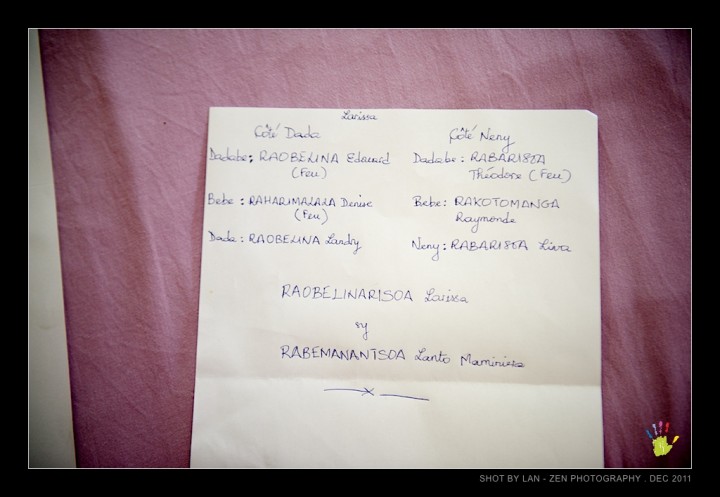 Larissa
Côté Dada
Côté Neny
Dadabe: RAOBELINA Edouard
(Feu)
Dadabe: RABARISOA
Théodore (Feu)
Bebe: RAHARIMALALA Denise
(Feu)
Bebe: RAKOTOMANGA
Raymonde
Dada: RAOBELINA Landry
Neny: RABARISOA Liva
RAOBELINARISOA Larissa
sy
RABEMANANTSOA Lanto
SHOT BY LAN - ZEN PHOTOGRAPHY . DEC 2011